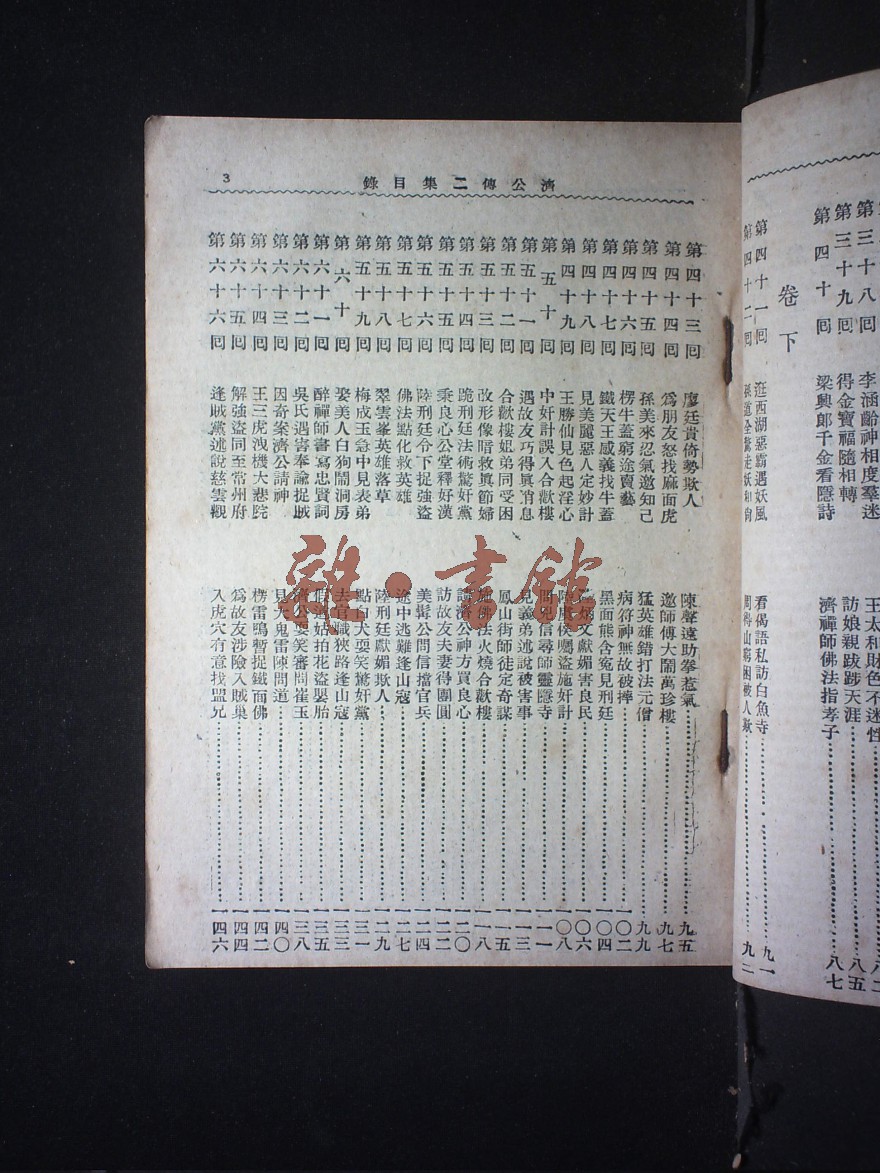 三十八回 李涵齡神相度羣迷 王太和財色不迷性
第三十九回 得金寶福隨相轉 訪娘親跋涉天涯 八五
第四十回 梁興郎千金看隱詩 濟禪師佛法指孝子 八七
卷下
第四十一回 逛西湖惡霸遇妖風 看偈語私訪白魚寺 九一
第四十二回 孫道全驚走妖和尚 周得山窮困被人欺 九二
濟公傳二集目錄
3
第四十三回 廖廷貴倚勢欺人 陳聲遠助拳惹氣 九五
第四十四回 爲朋友怒找麻面虎 邀師傅大鬧萬珍樓 九七
第四十五回 孫美來忍氣邀知己 猛英雄錯打法元僧 九九
第四十六回 楞牛蓋窮途賣藝 病符神無故被摔 一〇二
第四十七回 鐵天王感義找牛蓋 黑面熊含寃見刑廷 一〇四
第四十八回 見美麗惡人定妙計 文獻媚害良民 一〇六
第四十九回 王勝仙見色起淫心 侯囑盜施奸計 一〇八
第五十回 中奸計誤入合歡樓 信尋師靈隱寺 一一一
第五十一回 遇故友巧得眞消息 見義弟述說被害事 一一三
第五十二回 合歡樓姐弟同受困 鳳山街師徒定奇謀 一一五
第五十三回 改形像暗救眞節婦 施佛法火燒合歡樓 一一八
第五十四回 跪刑廷法術驚奸黨 請濟公神方買良心 一二〇
第五十五回 乘良心公堂釋好漢 訪故友夫妻得團圓 一二二
第五十六回 陸刑廷令下捉強盜 美髯公問信擋官兵 一二四
第五十七回 佛法點化救英雄 途中逃難逢山寇 一二七
第五十八回 翠雲峯英雄落草 陸刑廷獻媚欺人 一二九
第五十九回 梅成玉急中見表弟 點白犬耍笑驚奸黨 一三一
第六十回 娶美人白狗鬧洞房 去官職狹路逢山寇 一三三
第六十一回 醉禪師書寫忠賢詞 假道姑拍花盜嬰胎 一三五
第六十二回 吳氏遇害奉諭捉賊 濟公耍笑審問崔玉 一三八
第六十三回 因奇案濟公請神 見大鬼雷陳問道 一四〇
第六十四回 王三虎洩機大悲院 楞雷鳴暫捉鐵面佛 一四二
第六十五回 解強盜同至常州府 爲故友涉險入賊巢 一四四
第六十六回 逢賊黨述說慈雲觀 入虎穴有意找盟兄 一四六
雜·書館